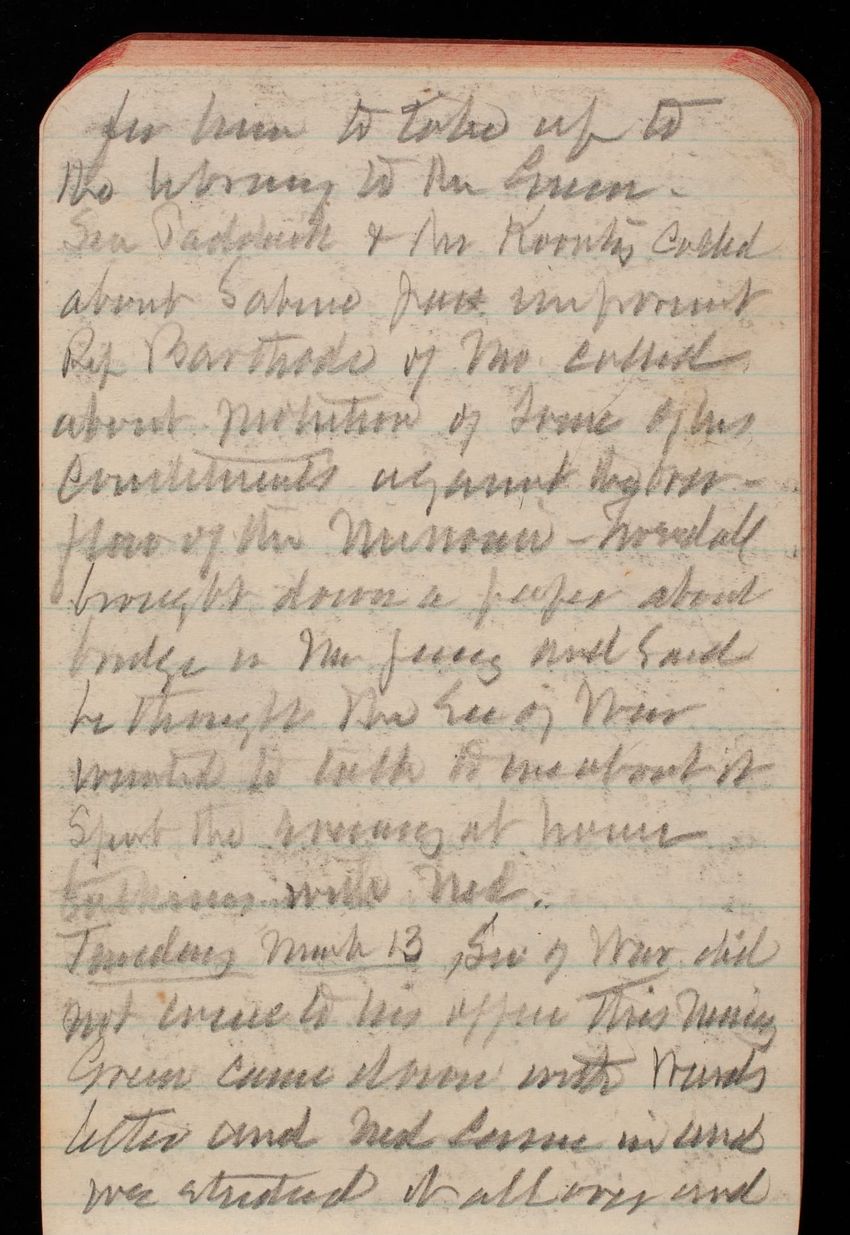 for him to take up to
the library to the Green.
Sen Paddock & Mr Koontz called
about Sabine Pass improvmt
Rep Bartholdt of Mo. called
about protection of some of his
Constituents against the over-
flow of the Missouri -
brought down a paper about
bridge in New Jersey and said
he thought the Sec of War
wanted to talk to me about it
Spent the evening at home
talking with Ned.
Tuesday March 13 Sec of War did
not come to his office this morning
Green came down with Wards
letter and Ned came in and
we studied it all over and